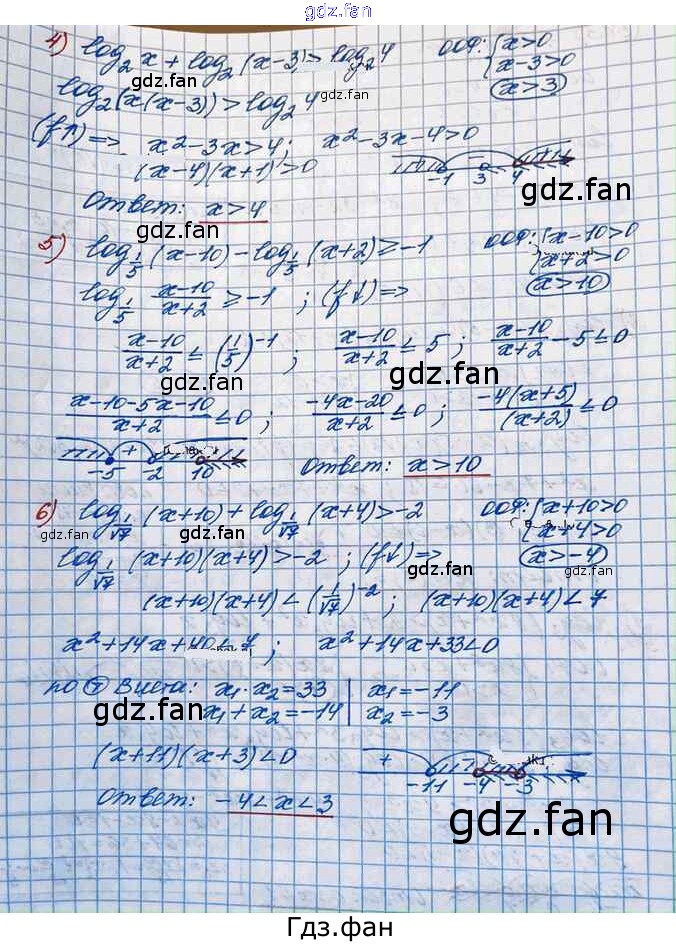 gdz.fan
4) log₂ x + log₂ (x-3) > log₂ 4 ООФ: { x>0
x-3>0
log₂(x(x-3)) > log₂ 4 x>3
(f↑) => x²-3x>4; x²-3x-4>0
(x-4)(x+1)>0
-1 3 4
Ответ: x>4
gdz.fan
5) log_{1/5} (x-10) - log_{1/5} (x+2) ≥ -1 ООФ: { x-10>0
x+2>0
log_{1/5} (x-10)/(x+2) ≥ -1 ; (f↓) => x>10
(x-10)/(x+2) ≤ (1/5)⁻¹ ; (x-10)/(x+2) ≤ 5 ; (x-10)/(x+2) - 5 ≤ 0
(x-10-5x-10)/(x+2) ≤ 0 ; (-4x-20)/(x+2) ≤ 0 ; -4(x+5)/(x+2) ≤ 0
- + -
-5 -2 10
Ответ: x>10
6) log_{1/√7} (x+10) + log_{1/√7} (x+4) > -2 ООФ: { x+10>0
x+4>0
log_{1/√7} (x+10)(x+4) > -2 ; (f↓) => x>-4
(x+10)(x+4) < (1/√7)⁻² ; (x+10)(x+4) < 7
x²+14x+40<7 ; x²+14x+33<0
по Т Виета: x₁·x₂=33 | x₁=-11
x₁+x₂=-14 | x₂=-3
(x+11)(x+3)<0
+
-11 -4 -3
Ответ: -4<x<3
gdz.fan
Гдз.фан